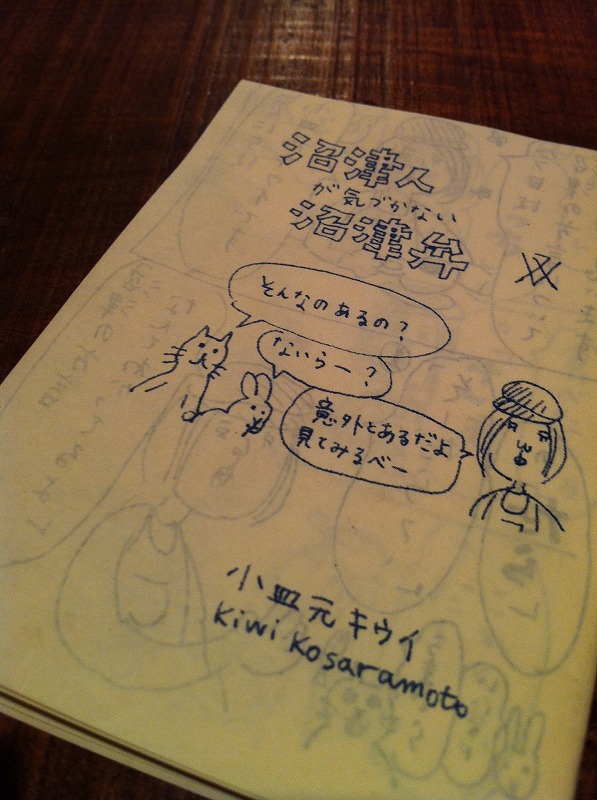 沼津人
が気づかない
沼津弁
そんなのあるの?
ないらー?
意外とあるだよ
見てみるべー
小皿元キウイ
Kiwi Kosaramoto